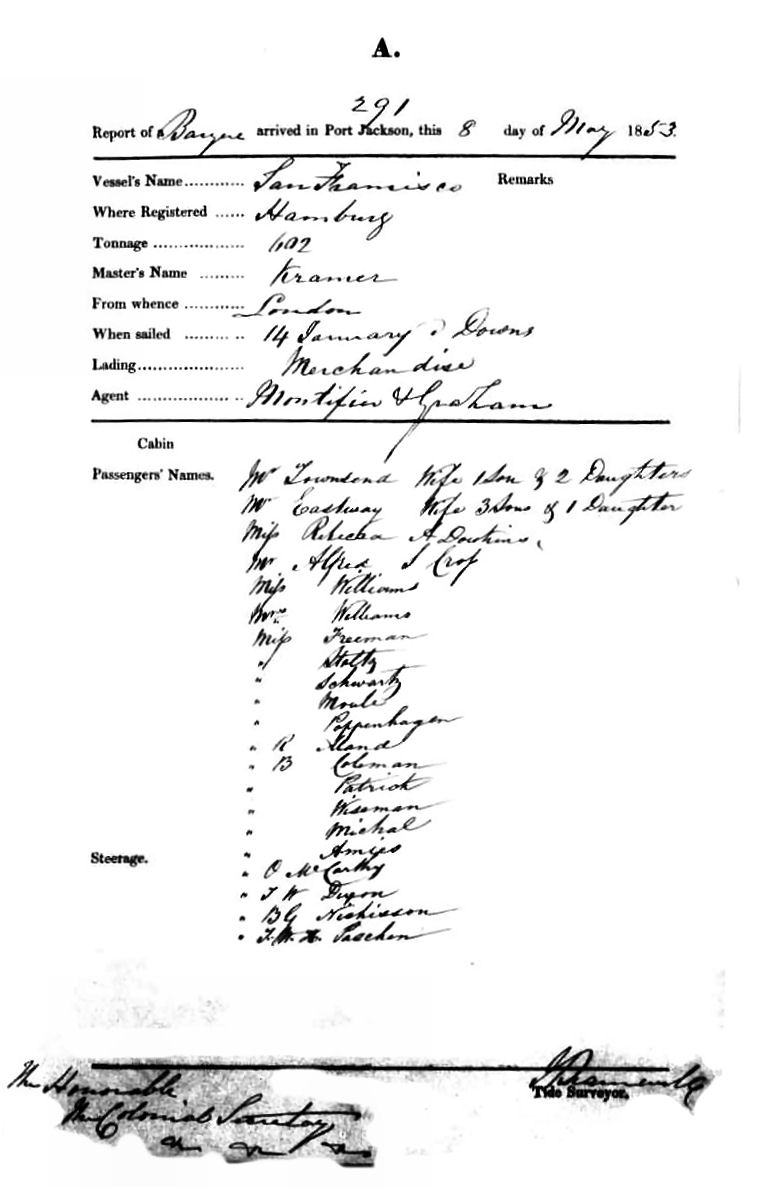 A.
291
Report of a Barque arrived in Port Jackson, this 8 day of May 1853.
Vessel's Name............ San Francisco Remarks
Where Registered ...... Hamburg
Tonnage ..................
Master's Name ......... Kramer
From whence ............ London
When sailed ......... .. 14 January Downs
Lading..................... Merchandise
Agent .................. .. Montifier & Graham
Cabin
Passengers' Names. Mr Townsend Wife 1 Son & 2 Daughters
Mr Eastway Wife 3 Sons & 1 Daughter
Miss Rebecca A
Mr Alfred Crop
Miss Williams
Mrs Williams
Miss Freeman
" Stoltz
" Schwartz
" Moule
" Poppenhagen
" R
" B Coleman
" Patrick
" Wiseman
" Michal
"
Steerage.
" O McCarthy
" W Dixon
" BG
" Paschen
The Honorable
The Colonial
Tide Surveyor.